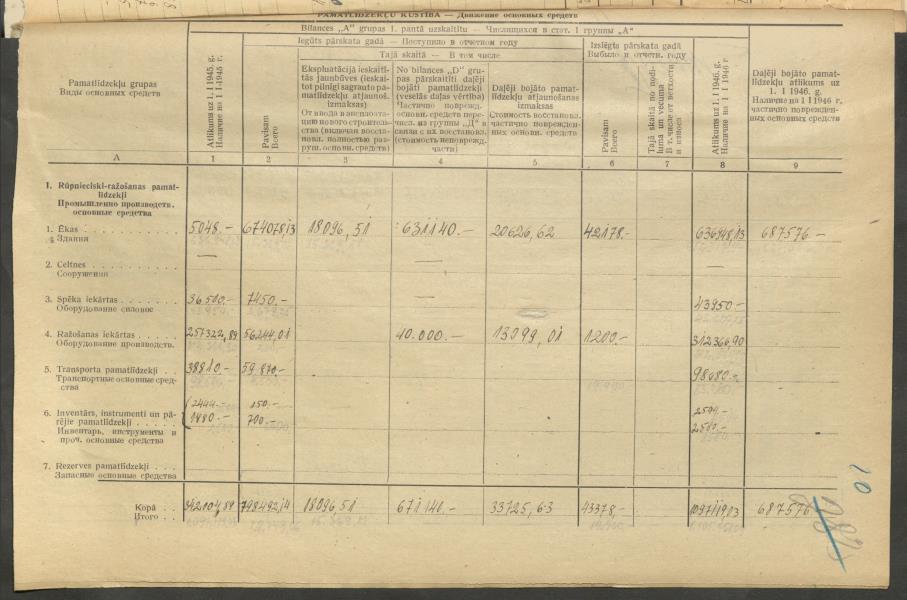 PAMATLĪDZEKĻU KUSTĪBA — Движение основных средств
Bilances „A" grupas 1. pantā uzskaitītu — Числящихся в стат. 1 группы „А"
Iegūts pārskata gadā — Поступило в отчетном году
Izslēgts pārskata gadā
Выбыло в отчетн. году
Tajā skaitā — В том числе
Pamatlīdzekļu grupas
Виды основных средств
Atlikums uz 1. I 1945. g.
Наличие на 1 I 1945 г.
Pavisam
Всего
Ekspluatācijā ieskaitī-
tās jaunbūves (ieskai-
tot pilnīgi sagrauto pa-
matlīdzekļu atjaunoš.
izmaksas)
От ввода в эксплоата-
цию нового строитель-
ства (включая восста-
новл. полностью раз-
руш. основн. средств)
No bilances „D" gru-
pas pārskaitīti daļēji
bojāti pamatlīdzekļi
(veselās daļas vērtība)
Частично поврежд.
основн. средств пере-
числ. из группы „Д" в
связи с их восстановл.
(стоимость неповрежд.
части)
Daļēji bojāto pamat-
līdzekļu atjaunošanas
izmaksas
Стоимость восстановл.
частично поврежден-
ных основн. средств
Pavisam
Всего
Tajā skaitā no nodi-
luma un vecuma
В т. числе от ветхости
и износа
Atlikums uz 1. I 1946. g.
Наличие на 1 I 1946 г
Daļēji bojāto pamat-
līdzekļu atlikums uz
1. I 1946. g.
Наличие на 1 I 1946 г.
частично поврежден-
ных основных средств
A 1 2 3 4 5 6 7 8 9
1. Rūpnieciski-ražošanas pamat-
līdzekļi
Промышленно производств.
основные средства
1. Ēkas 5048.— 674078,13 18096,51 631140.— 20626,62 42178.— 636948,13 687576 —
Здания
2. Celtnes — — —
Сооружения
3. Spēka iekārtas 36500.— 7450.— — 43950.—
Оборудование силовое
4. Ražošanas iekārtas 257322,89 56244,01 40.000.— 13099,01 1200.— 312366,90
Оборудование производств.
5. Transporta pamatlīdzekļi 38810.— 59870.— 98680.—
Транспортные основные сред-
ства
2444.— 150.— 2594.—
6. Inventārs, instrumenti un pā-
rējie pamatlīdzekļi 1880.— 700.— 2580.—
Инвентарь, инструменты и
проч. основные средства
7. Rezerves pamatlīdzekļi
Запасные основные средства
Kopā 342004,89 798492,14 18096,51 671140.— 33725,63 43378.— 1097119,03 687576
Итого
10